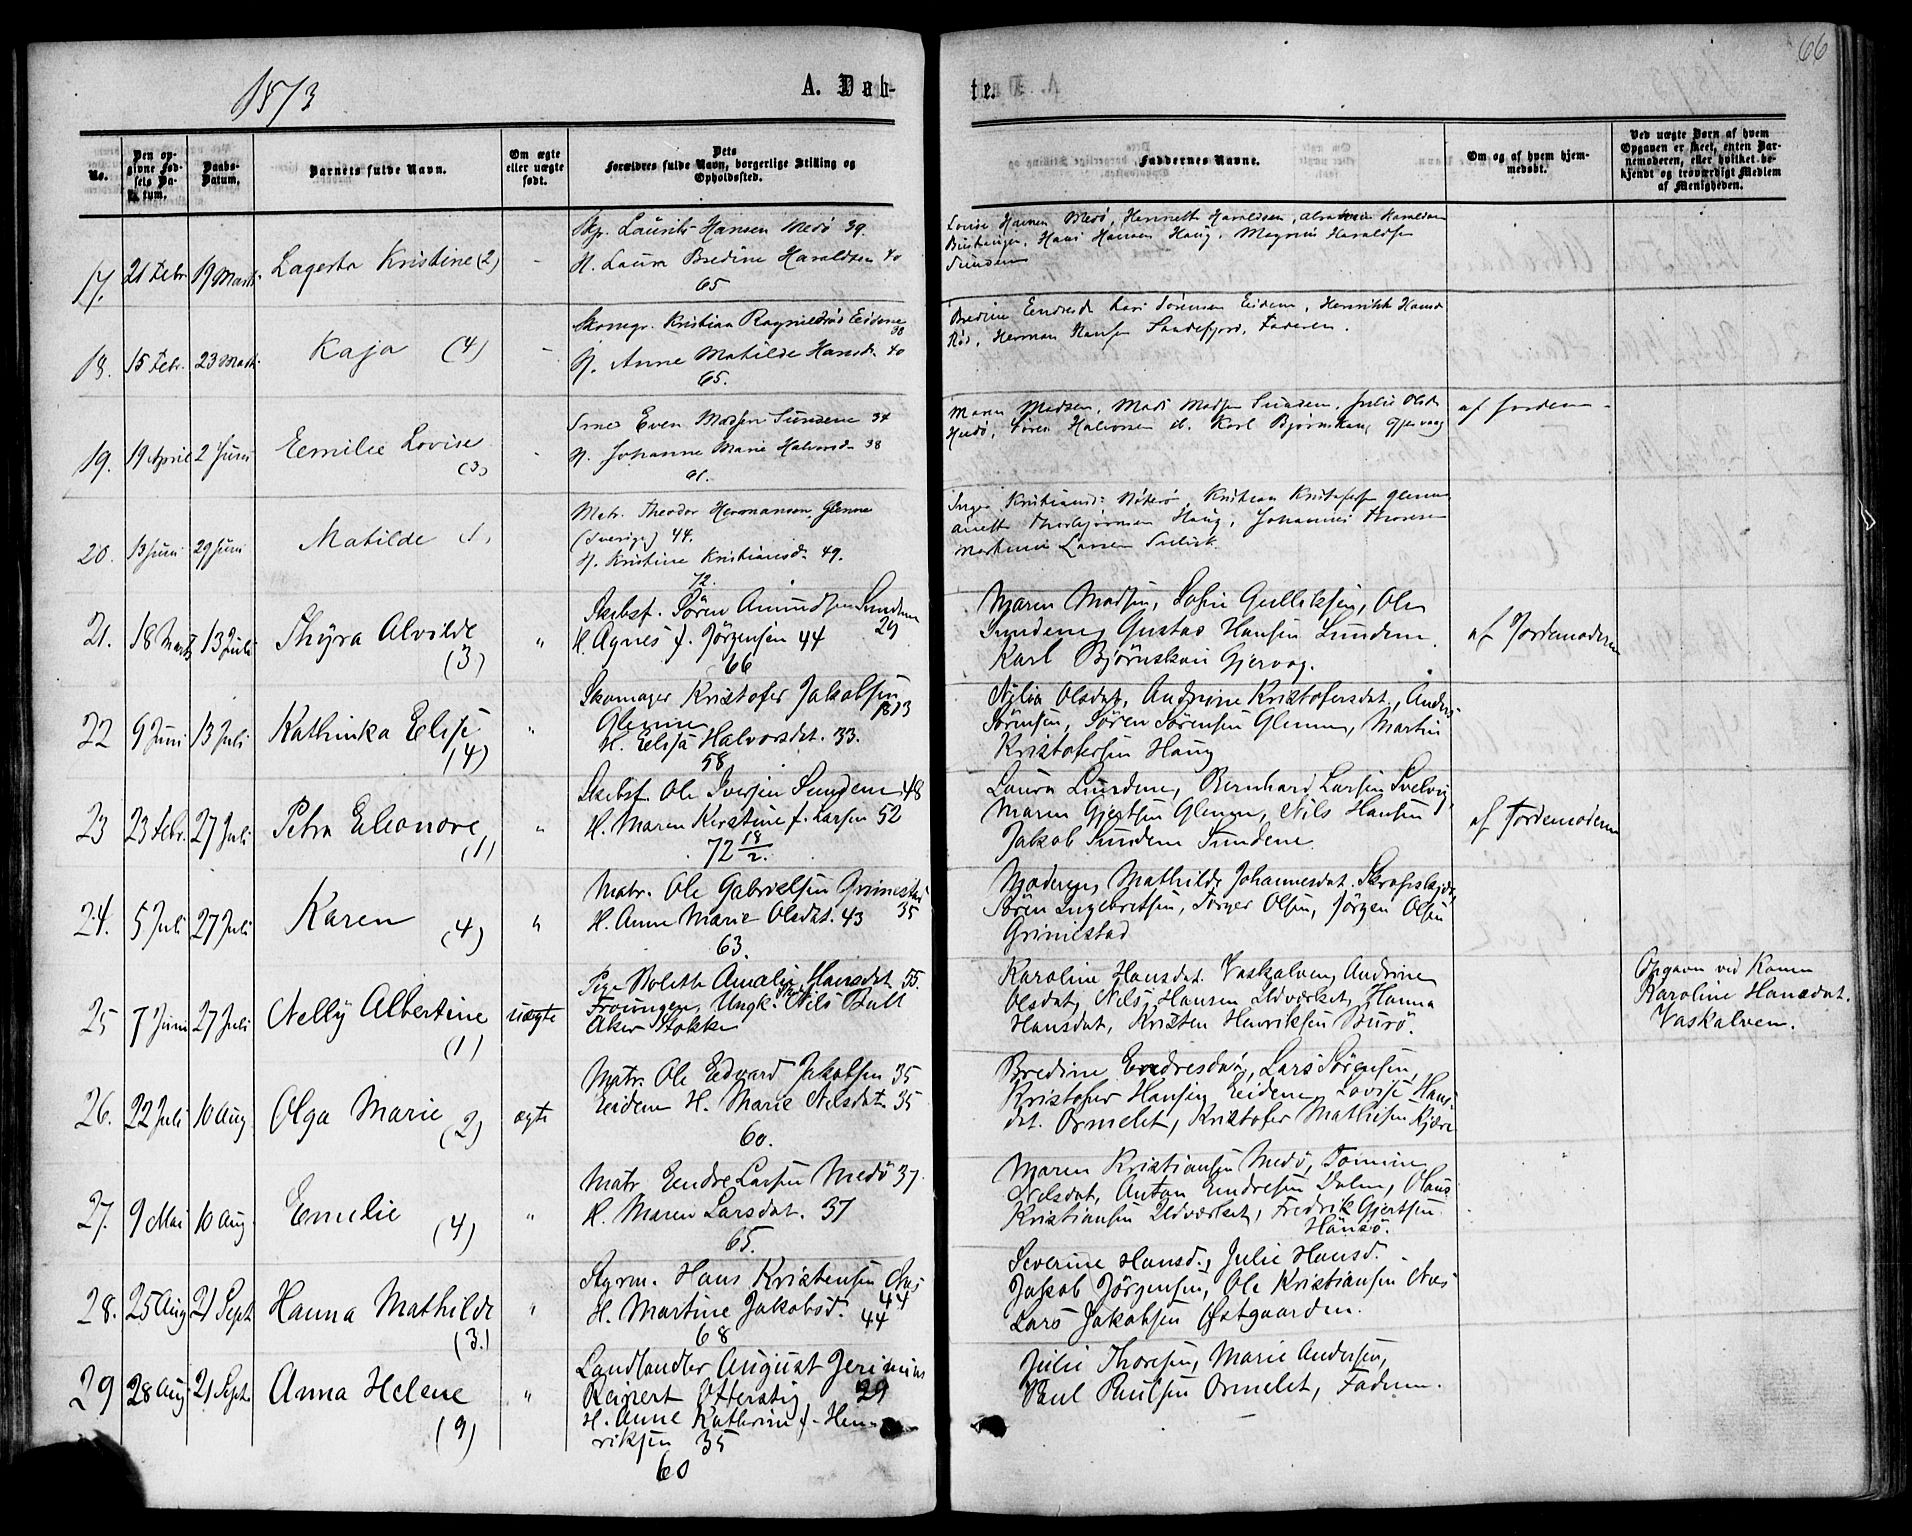 66
1873
A. Dab-
te.
No.
Den op-
givne Fød-
sels Da-
tum.
Daabs-
Datum.
Barnets fulde Navn.
Om ægte
eller uægte
født.
Dets
Forældres fulde Navn, borgerlige Stilling og
Opholdssted.
Faddernes Navne.
Om og af hvem hjem-
medøbt.
Ved uægte Børn af hvem
Opgaven er skeet, enten Bar-
nemoderen, eller hvilket be-
kjendt og troværdigt Medlem
af Menigheden.
17. 21 Febr 19 Marts Lagerta Kristine (2) -
Skp. Laurits Hansen Medö 39.
H. Laura Bredine Haraldsen 40
65
Lovise Hansen Medö, Henriette Haraldsen, Haraldsen
Hans Hansen Haug, Magnus Haraldsen
Sundene
18. 15 Febr. 23 Marts Kaja (4) -
Skomgr. Kristian Ragnildröd Eidene
38
H. Anne Matilde Hansd. 40
65.
Bredine Endresd. Lars Sørensen Eidene, Henrikke Hansd
Röd, Herman Hansen Sandefjord, Faderen.
19. 19 April 2 Juni Emilie Lovise (3)
Even Madsen Sundene 34
H. Johanne Marie Halvorsd. 38
61.
Maren Madsen, Mads Madsen Sundene, Julie Olsd.
Sören Halvorsen Karl Bjørnskau, Gjervaag
af Jordem
20. 13 Juni 29 Juni Matilde (1)
Matr. Theodor Hermansen, Glenne
(Sverige) 44.
H. Kristine Kristiansd. 49.
72.
Inger Kristiansd. Nøterö, Kristian Kristofersen Glenne
Anette Thorbjörnsen Haug, Johannes Thoresen
Larsen
21. 18 Marts 13 Juli Thyra Alvilde (3) "
Skibsf. Sören Amundsen Sundene
29
H. Agnes f. Jörgensen 44
66
Maren Madsen, Sofie Gulliksen, Ole
Sundene, Gustav Hansen Sundene
Karl Bjørnskau Gjervog.
af Jordemoderen
22 9 Juni 13 Juli Kathinka Elise (4) "
Skomager Kristofer Jakobsen
Glenne 1813
H. Elise Halvorsdat. 33.
58
Olsdat, Andrine Kristofersdat, Anders
Sörensen, Sören Sörensen Glenne, Martin
Kristofersen Haug
23 23 Febr. 27 Juli Petra Eleonore (1) "
Skibsf. Ole Iversen Sundene 48
H. Maren Kirstine f. Larsen 52
72 18/2.
Laura Sundene, Bernhard Larsen Svelvig
Maren Gjertsen Glenne, Nils Hansen
Jakob Sundene Sundene.
af Jordemoderen
24. 5 Juli 27 Juli Karen (4) "
Matr. Ole Gabrielsen Grimestad
35
H. Anne Marie Olsdat. 43
63.
Moderen, Mathilde Johannesdat.
Sören Ingebretsen, Torger Olsen, Jörgen Olsen
Grimestad
25 7 Juni 27 Juli Nelly Albertine (1) uægte
Pige Bolette Amalie Hansdat 55.
Ungk. Nils Bull
Aker Stokke
Karoline Hansdat. Vaskalven, Andrine
Olsdat, Nils Hansen Udværket, Hanna
Hansdat, Kristen Henriksen Burö.
Opgaven ved Konen
Karoline Hansdat.
Vaskalven.
26. 22 Juli 10 Aug Olga Marie (2) ægte
Matr. Ole Edvard Jakobsen 35
Eidene H. Marie Nilsdat. 35
60.
Bredine Endresdat, Lars Sörensen,
Kristofer Hansen Eidene, Lovise Hans-
dat. Ormelet, Kristofer Mathisen Kjære
27. 9 Mai 10 Aug. Emelie (4) "
Matr Endre Larsen Medö 37
H. Maren Larsdat. 37
65.
Maren Kristiansen Medö, Tomine
Nilsdat, Anton Endresen Dalen, Claus
Kristiansen Udværket, Fredrik Gjertsen
Hansö.
28. 25 Aug 21 Sept Hanna Mathilde (3.) "
Styrm. Hans Kristensen Næs
44
H. Martine Jakobsd. 44
68
Severine Hansd., Julie Hansd.
Jakob Jörgensen, Ole Kristiansen Næs
Lars Jakobsen Østgaarden.
29 28 Aug 21 Sept. Anna Helene (9) "
Landhandler August Jerimias
Reinert Otterstig 29
H. Anne Kathrine f. Hen-
riksen 35
60
Julie Thoresen, Marie Andersen,
Paul Paulsen Ormelet, Faderen.